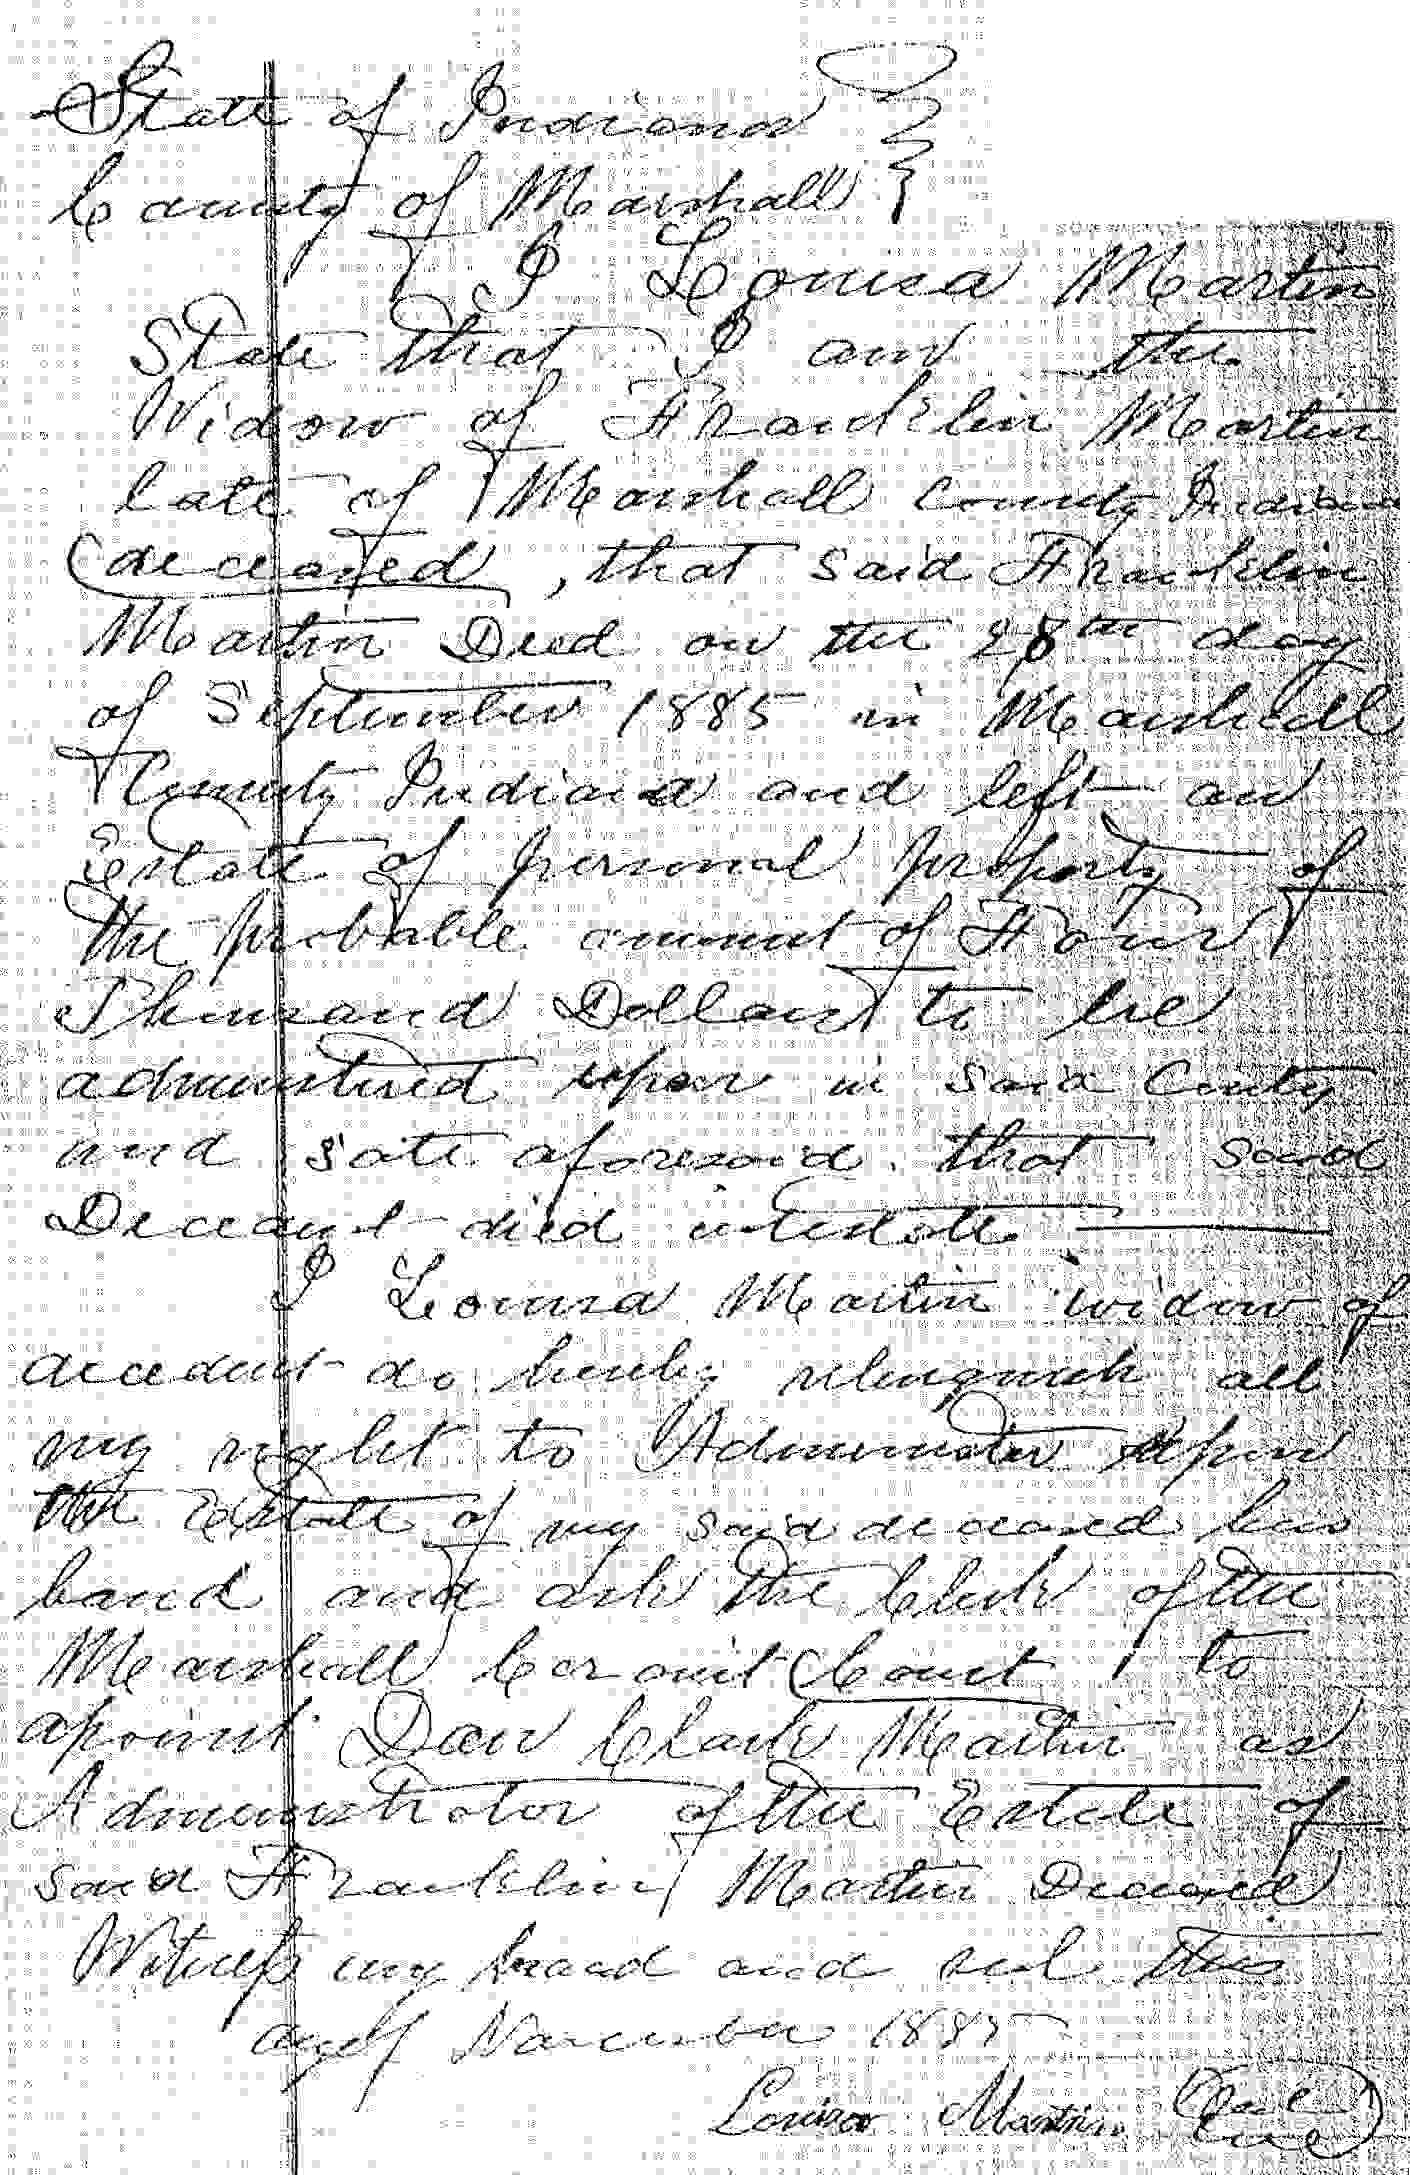 State of Indiana
County of Marshall
I Louisa Martin
State that I am the
Widow of Franklin Martin
late of Marshall County Indiana
deceased, that said Franklin
Martin Died on the 28th day
of September 1885 in Marshall
County Indiana and left an
Estate of personal property of
the probable amount of Four
Thousand Dollars to be
administered upon in said County
and sate aforesaid that said
Deceant died intestate
I Louisa Martin widow of
decedent do hereby relinquish all
my right to Administer upon
the Estate of my said deceased hus
band and ask the Clerk of the
Marshall Circuit Court to
apoint Dan Clark Martin as
Administrator of the Estate of
said Franklin Martin Deceased
Witness my hand and seal this
day of November 1885
Louisa Martin Seal